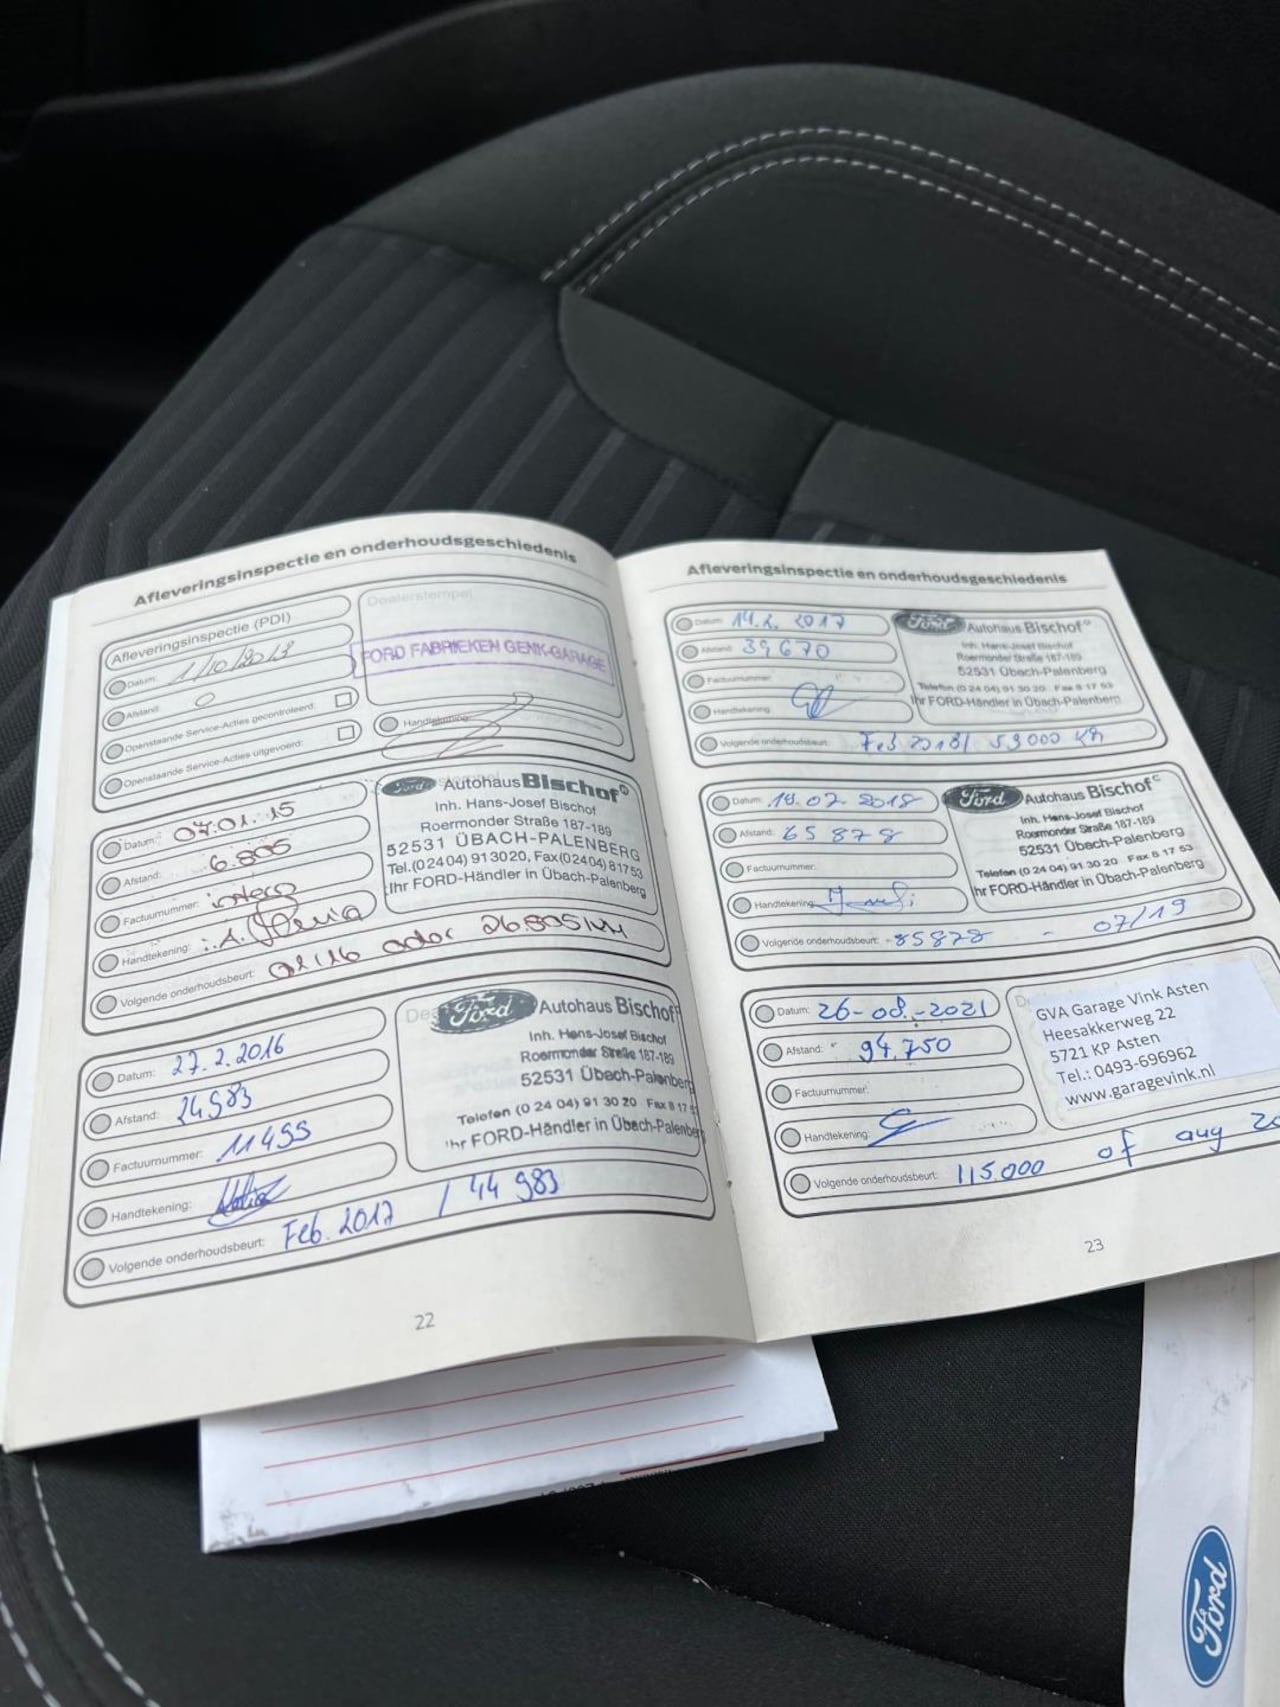 Afleveringsinspectie en onderhoudsgeschiedenis
Afleveringsinspectie (PDI)
Datum: 1/10/2013
Afstand: 0
Openstaande Service-Acties gecontroleerd:
Openstaande Service-Acties uitgevoerd:
Dealerstempel
FORD FABRIEKEN GENK-GARAGE
Handtekening:
Datum: 07.01.15
Afstand: 6.805
Factuurnummer: intern
Handtekening:
Volgende onderhoudsbeurt: 01/16 oder 26.805 km
Ford Autohaus Bischof
Inh. Hans-Josef Bischof
Roermonder Straße 187-189
52531 ÜBACH-PALENBERG
Tel.(02404) 913020, Fax(02404) 81753
Ihr FORD-Händler in Übach-Palenberg
Datum: 27.2.2016
Afstand: 24983
Factuurnummer: 11499
Handtekening:
Volgende onderhoudsbeurt: Feb. 2017 / 44 983
Ford Autohaus Bischof
Inh. Hans-Josef Bischof
Roermonder Straße 187-189
52531 Übach-Palenberg
Telefon (0 24 04) 91 30 20 Fax 8 17 53
Ihr FORD-Händler in Übach-Palenberg
22
Afleveringsinspectie en onderhoudsgeschiedenis
Datum: 14.2. 2017
Afstand: 39670
Factuurnummer:
Handtekening:
Volgende onderhoudsbeurt: Feb 2018/ 59000 km
Ford Autohaus Bischof
Inh. Hans-Josef Bischof
Roermonder Straße 187-189
52531 Übach-Palenberg
Telefon (0 24 04) 91 30 20 Fax 8 17 53
Ihr FORD-Händler in Übach-Palenberg
Datum: 18.07.2018
Afstand: 65878
Factuurnummer:
Handtekening:
Volgende onderhoudsbeurt: 85878 - 07/19
Ford Autohaus Bischof
Inh. Hans-Josef Bischof
Roermonder Straße 187-189
52531 Übach-Palenberg
Telefon (0 24 04) 91 30 20 Fax 8 17 53
Ihr FORD-Händler in Übach-Palenberg
Datum: 26-08-2021
Afstand: 94.750
Factuurnummer:
Handtekening:
Volgende onderhoudsbeurt: 115.000 of aug 20
GVA Garage Vink Asten
Heesakkerweg 22
5721 KP Asten
Tel.: 0493-696962
www.garagevink.nl
23
Ford